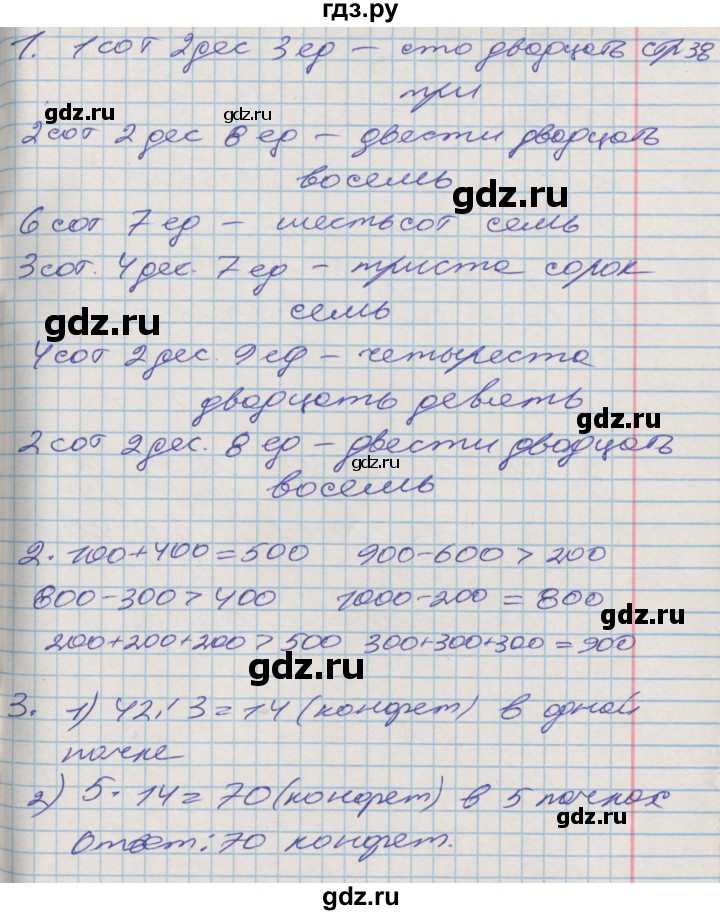 гдз.ру
1. 1 сот 2 дес 3 ед – сто двадцать стр 38
три
gdz.ru gdz.ru
2 сот 2 дес 8 ед – двести двадцать
восемь
gdz.ru
6 сот 7 ед – шестьсот семь
3 сот. 4 дес. 7 ед – триста сорок
семь
gdz.ru
4 сот 2 дес. 9 ед – четыреста
двадцать девять
gdz.ru
2 сот 2 дес. 8 ед – двести двадцать
gdz.ru
восемь
2. 100+400=500 900-600>200
800-300>400 1000-200=800
gdz.ru
200+200+200>500 300+300+300=900
gdz.ru
3. 1) 42:3=14 (конфет) в одной
пачке
2) 5·14=70 (конфет) в 5 пачках
gdz.ru
Ответ: 70 конфет.
гдз.ру